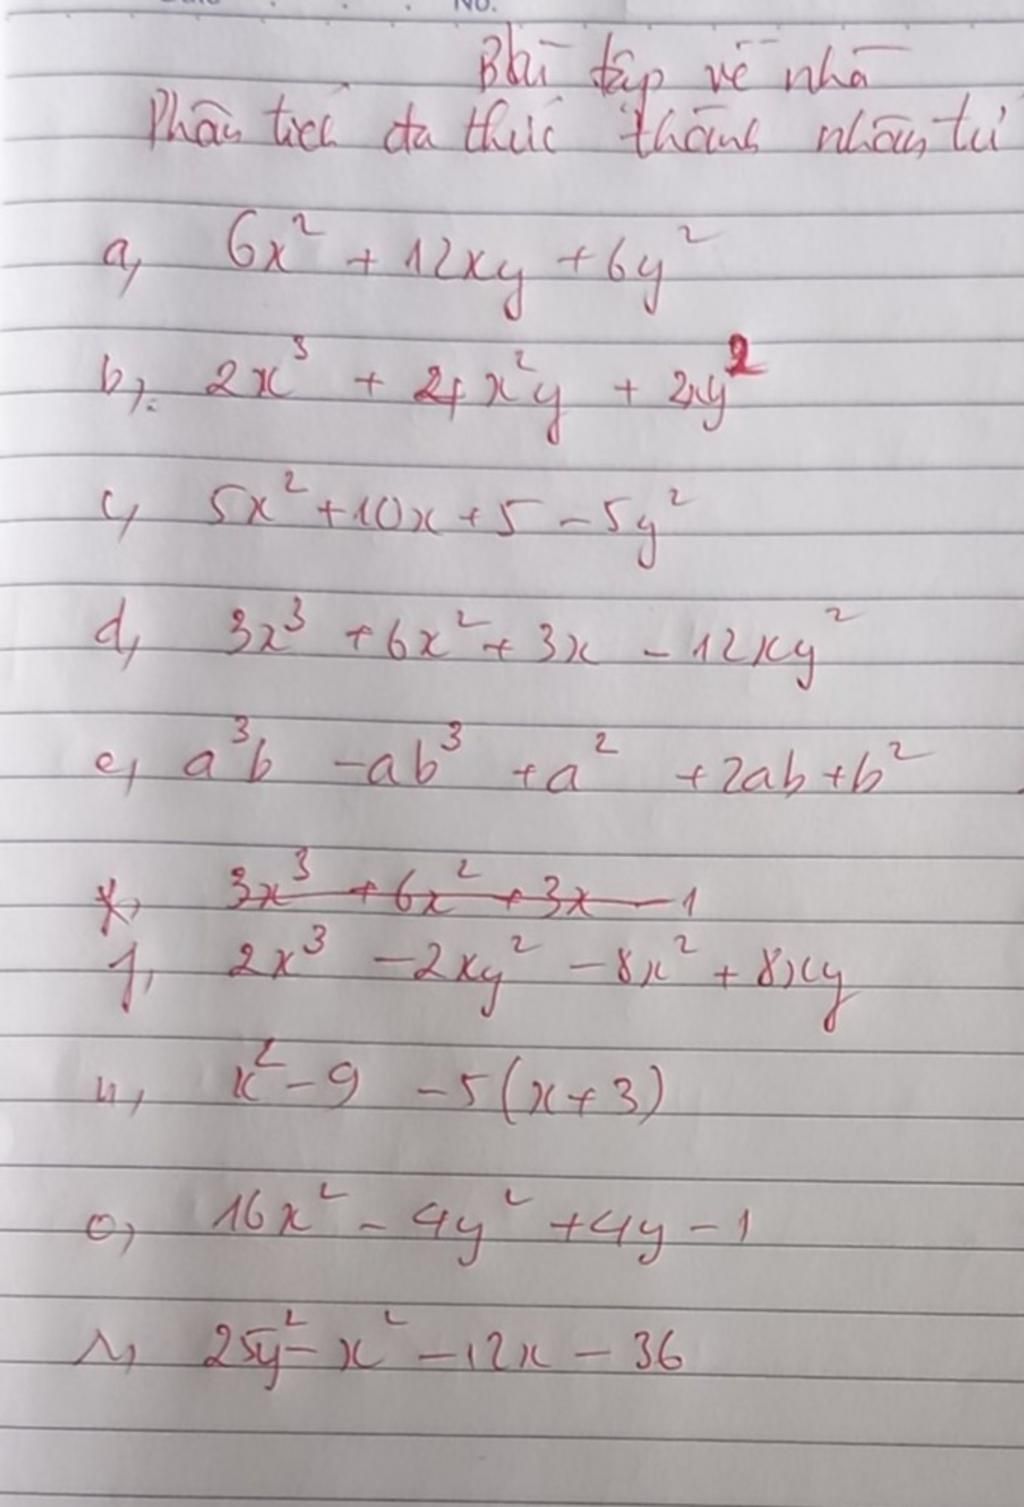 No.
Bài tập về nhà
Phân tích đa thức thành nhân tử
a, 6x² + 12xy + 6y²
b, 2x³ + 4x²y + 2xy²
c, 5x² + 10x + 5 - 5y²
d, 3x³ + 6x² + 3x - 12xy²
e, a³b - ab³ + a² + 2ab + b²
3x³ + 6x² + 3x - 1
f, 2x³ - 2xy² - 8x² + 8xy
n, x² - 9 - 5(x + 3)
o, 16x² - 4y² + 4y - 1
25y² - x² - 12x - 36